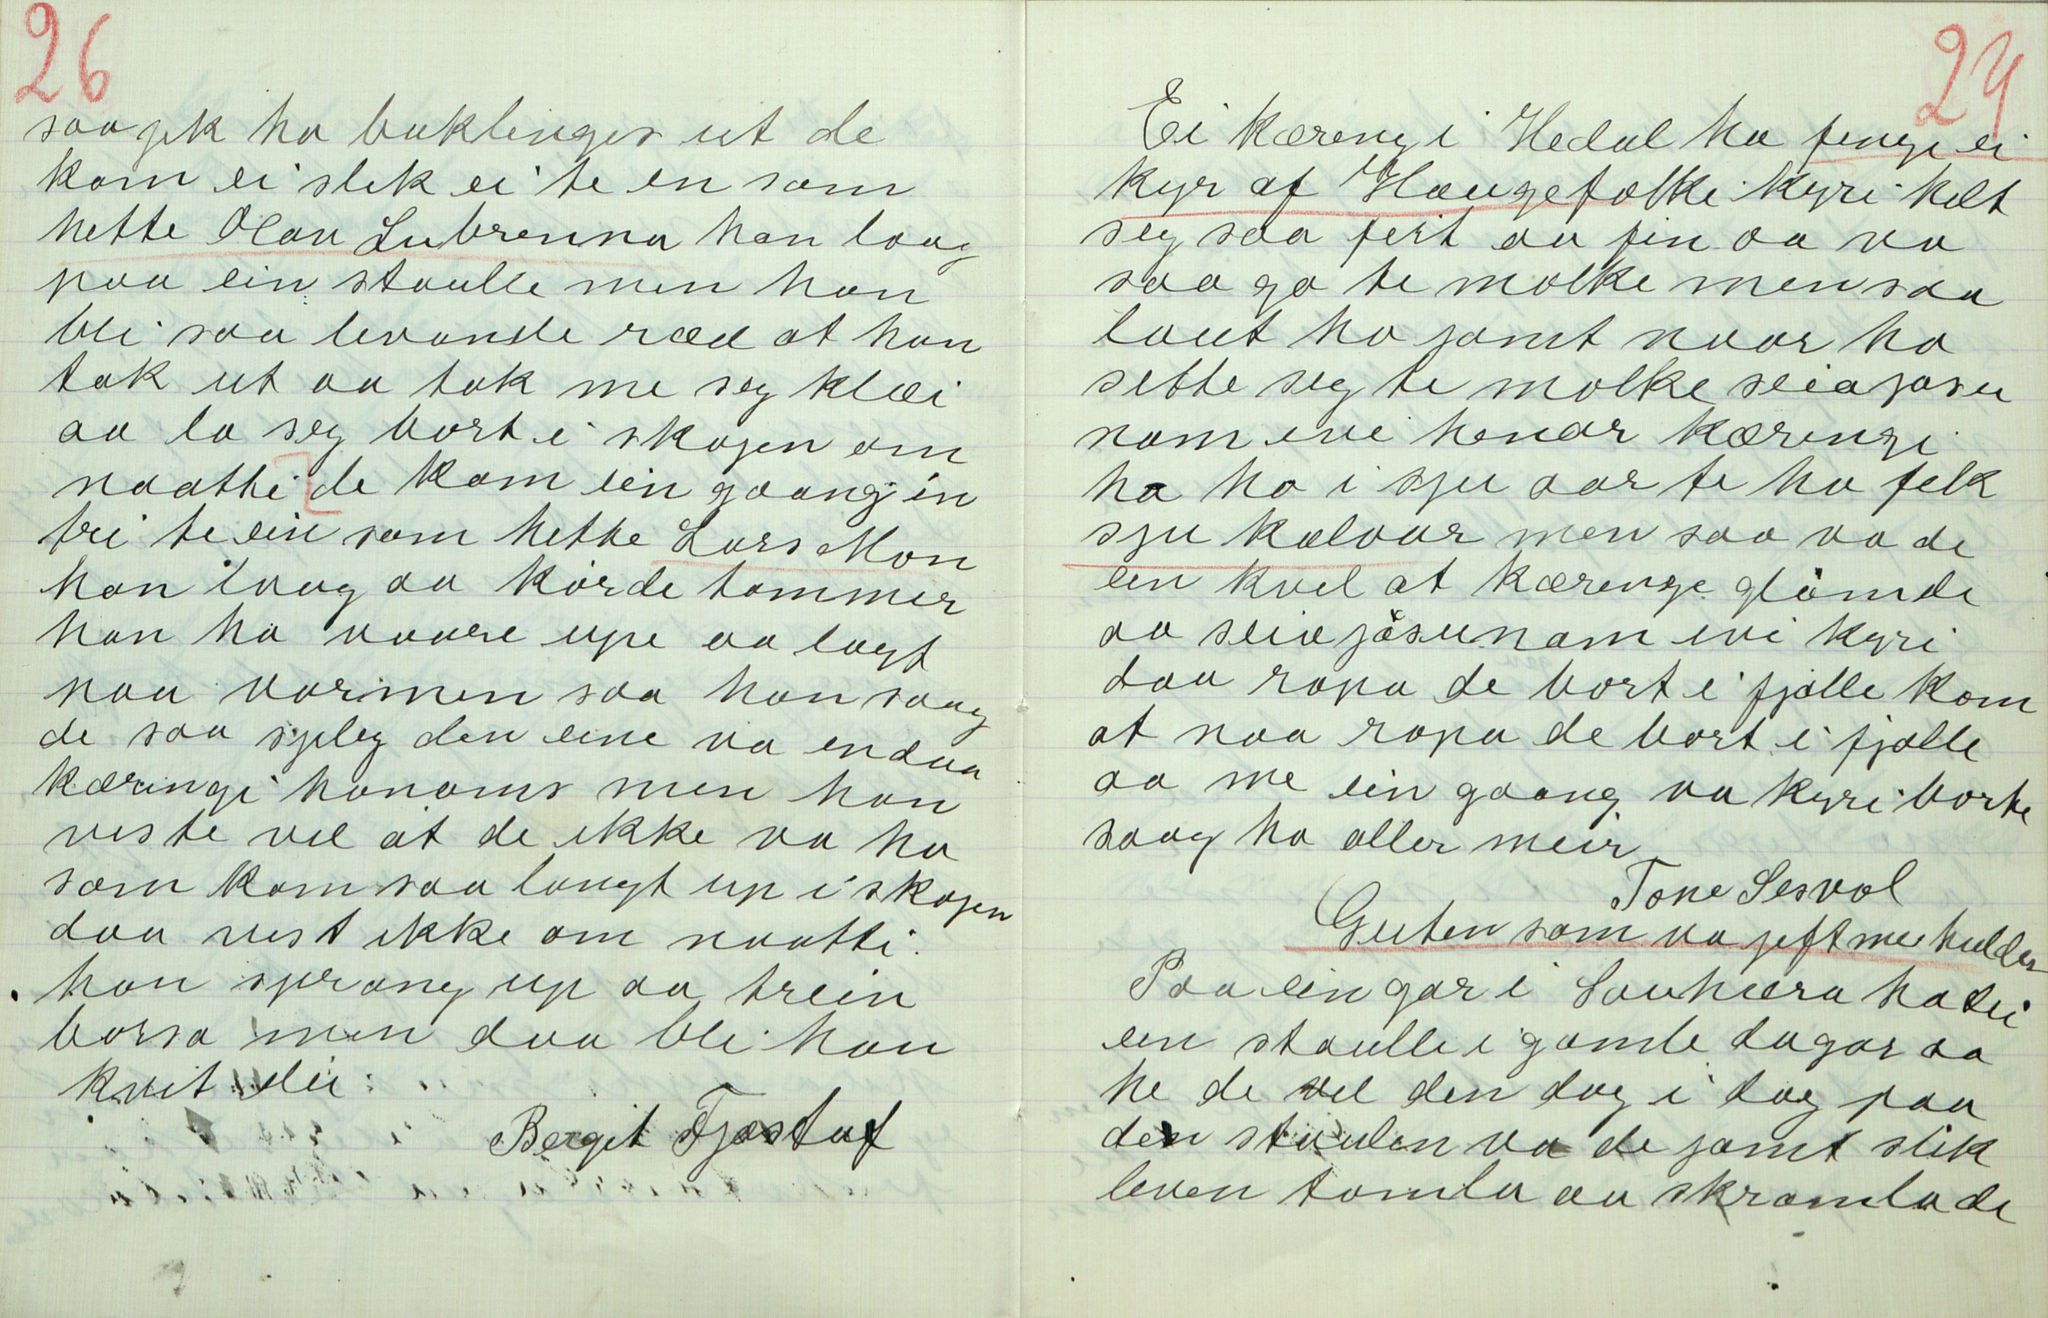 26
saa gek ho baklinges ut de
kom ei slek ei te en som
hette Olav Lubrenna han laag
paa ein staulle men han
bli saa levande ræd at han
tok ut aa tok me seg klæi
aa la seg bort i skogen om
naatti de kom ein gaang in
tri te ein som hette Lars Mon
han laag aa kørde tømmer
han ha vaare upe aa lagt
paa varmen saa han saag
de saa sjeleg den eine va endaa
kæringi honoms men han
viste vel at de ikke va ho
som kom saa langt up i skogen
daa vist ikke om naatti.
han sprang up aa trein
borsa men daa bli han
kvit dei
Bergit Fjøstuf
27
Ei kæreng i Hedal ha fenge ei
kyr af Haugefolke kyri helt
seg saa feit aa fin aa va
saa go te molke men saa
laut ho jamt naar ho
sette seg te molke seia jøsu
nam ivi henar kæringi
ha ho i sju aar te ho fekk
sju kalvar men saa va de
ein kvel at kærenge glømde
aa seia jøsunam ivi kyri
daa ropa de bort i fjølle kom
at naa ropa de bort i fjølle
aa me ein gaang va kyri borte
saag ho aller meir
Tone Sesvol
Guten som va jift mee hulder
Paa ein gar i Sauhæra ha dei
ein staulle i gamle dagar aa
he de vel den dag i dag paa
den staulen va de jamt slik
leven tamla aa skramla de